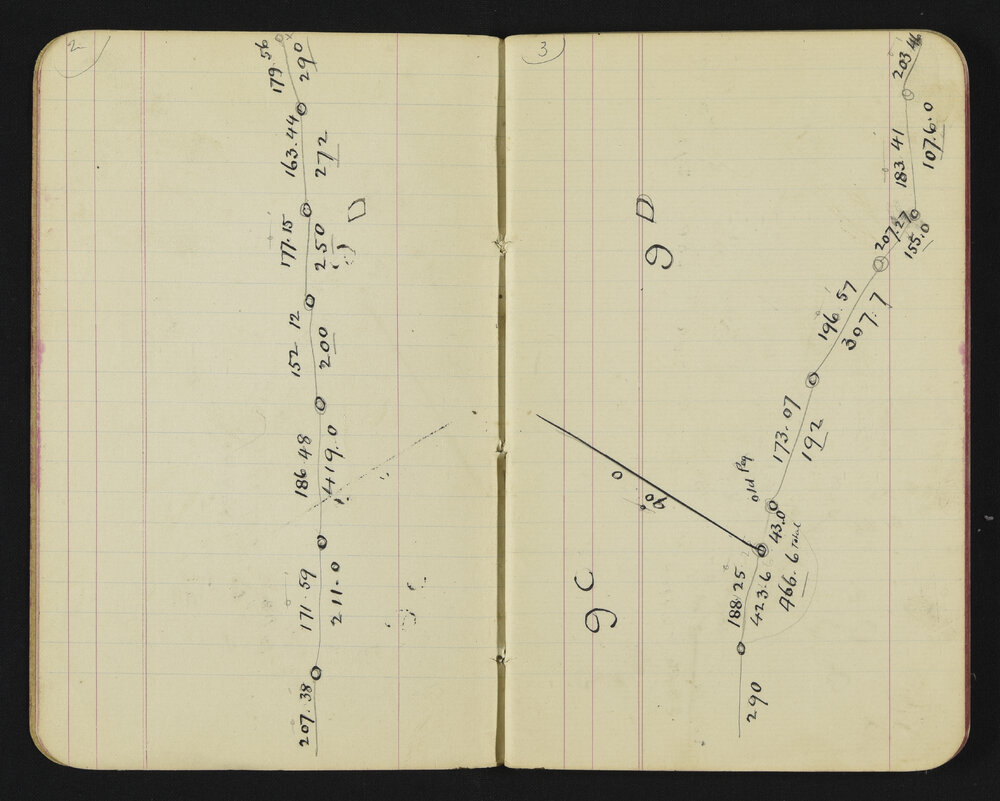 2
179.56
290
163.44
272
177.15
250
D
152 12
200
186 48
419.0
171 59
211.0
207.38
3
203 46
183 41
107.6.0
207.27
155.0
9 D
196.57
307.7
173.07
192
old Peg
43.0
90
188 25
423.6
466.6 Total
9 C
290